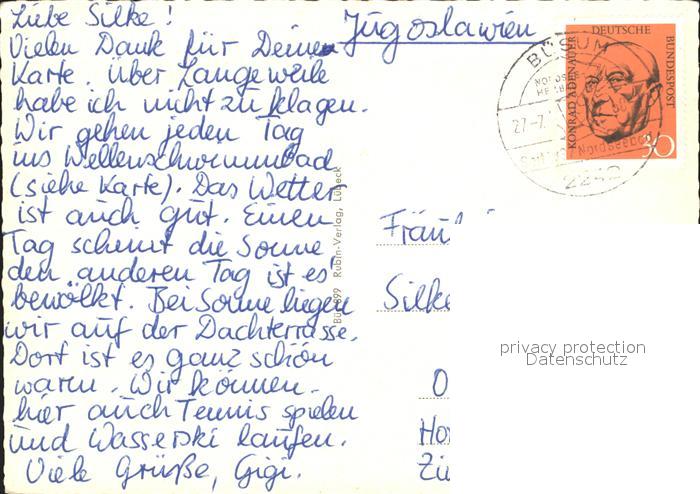 Liebe Silke!
Jugoslawien
Vielen Dank für Deine
Karte. über Langeweile
habe ich nicht zu klagen.
Wir gehen jeden Tag
ins Wellenschwimmbad
(siehe Karte). Das Wetter
ist auch gut. Einen
Tag scheint die Sonne,
den anderen Tag ist es
bewölkt. Bei Sonne liegen
wir auf der Dachterrasse.
Dort ist es ganz schön
warm. Wir können
hier auch Tennis spielen
und Wasserski laufen.
Viele Grüße, Gigi.
Rubin-Verlag, Lübeck
DEUTSCHE
BUNDESPOST
KONRAD ADENAUER
30
BÜSUM
27.-7.
2242
Fräul
Silke
O
Ho
Zü
privacy protection
Datenschutz